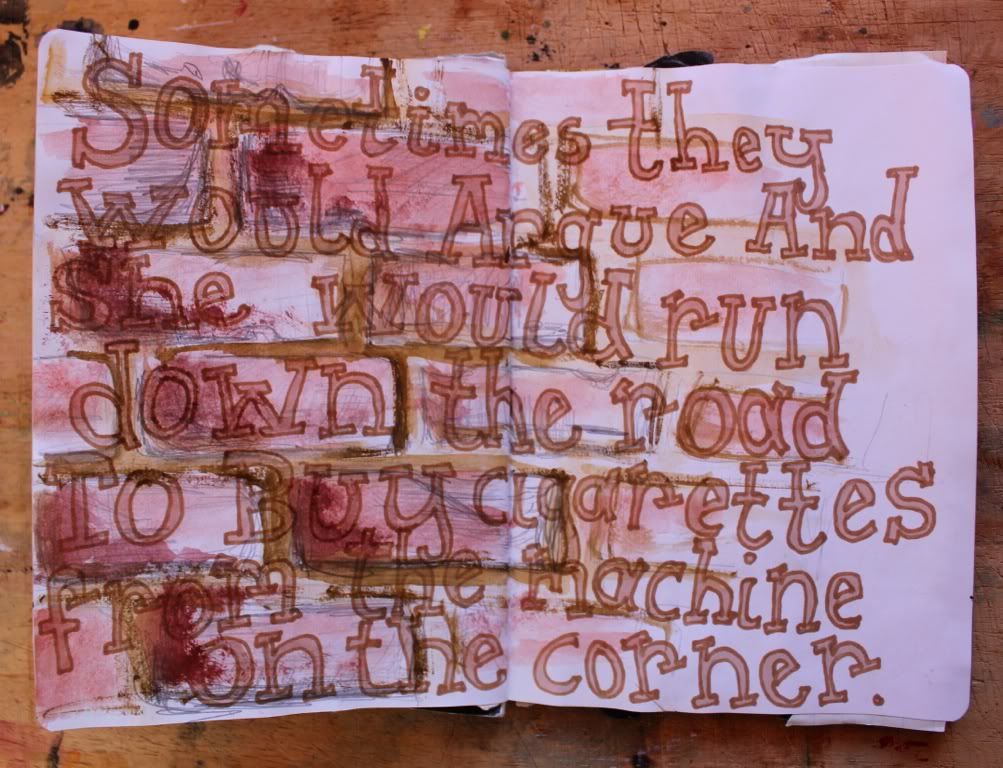 Sometimes they
Would Argue And
She Would run
down the road
To Buy cigarettes
from the machine
on the corner.